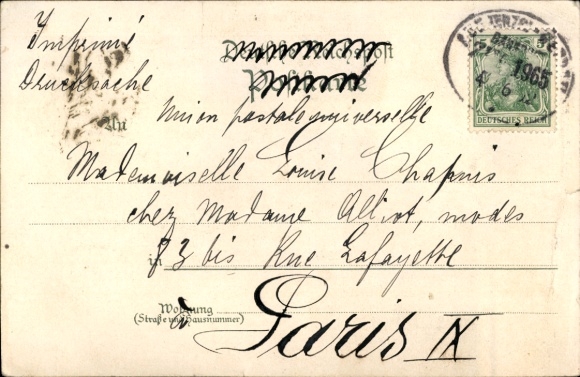 Imprimé
Drucksache
Deutsche Reichspost
Postkarte
An
Union postale universelle
Mademoiselle Louise Chapuis
chez Madame Alliot, modes
in 73 bis Rue Lafayette
Wohnung
(Straße und Hausnummer)
à Paris IX
5
1965
DEUTSCHES REICH